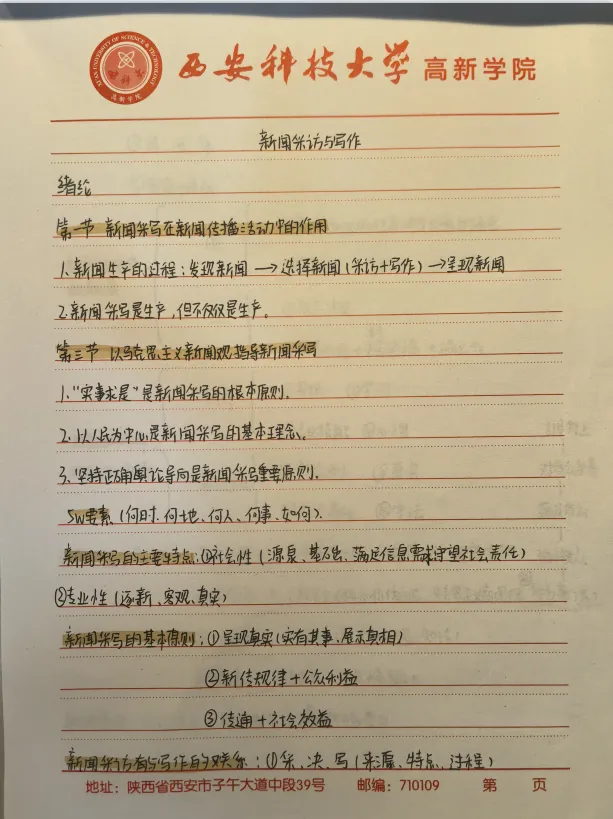 西安科技大学 高新学院
XI'AN UNIVERSITY OF SCIENCE & TECHNOLOGY
高新学院
新闻采访与写作
绪论
第一节 新闻采写在新闻传播活动中的作用
1.新闻生产的过程:发现新闻→选择新闻(采访+写作)→呈现新闻
2.新闻采写是生产,但不仅仅是生产。
第三节 以马克思主义新闻观指导新闻采写
1.“实事求是”是新闻采写的根本原则.
2.以人民为中心是新闻采写的基本理念.
3.坚持正确舆论导向是新闻采写重要原则.
5W要素(何时、何地、何人、何事、如何).
新闻采写的主要特点:①社会性(源泉、基础、满足信息需求守望社会责任)
②专业性(逐新、客观、真实)
新闻采写的基本原则:①呈现真实(实有其事、展示真相)
②新传规律+公众利益
③传通+社会效益
新闻采访与写作的关系:①采、决、写(来源、特点、过程)
地址:陕西省西安市子午大道中段39号 邮编:710109 第 页